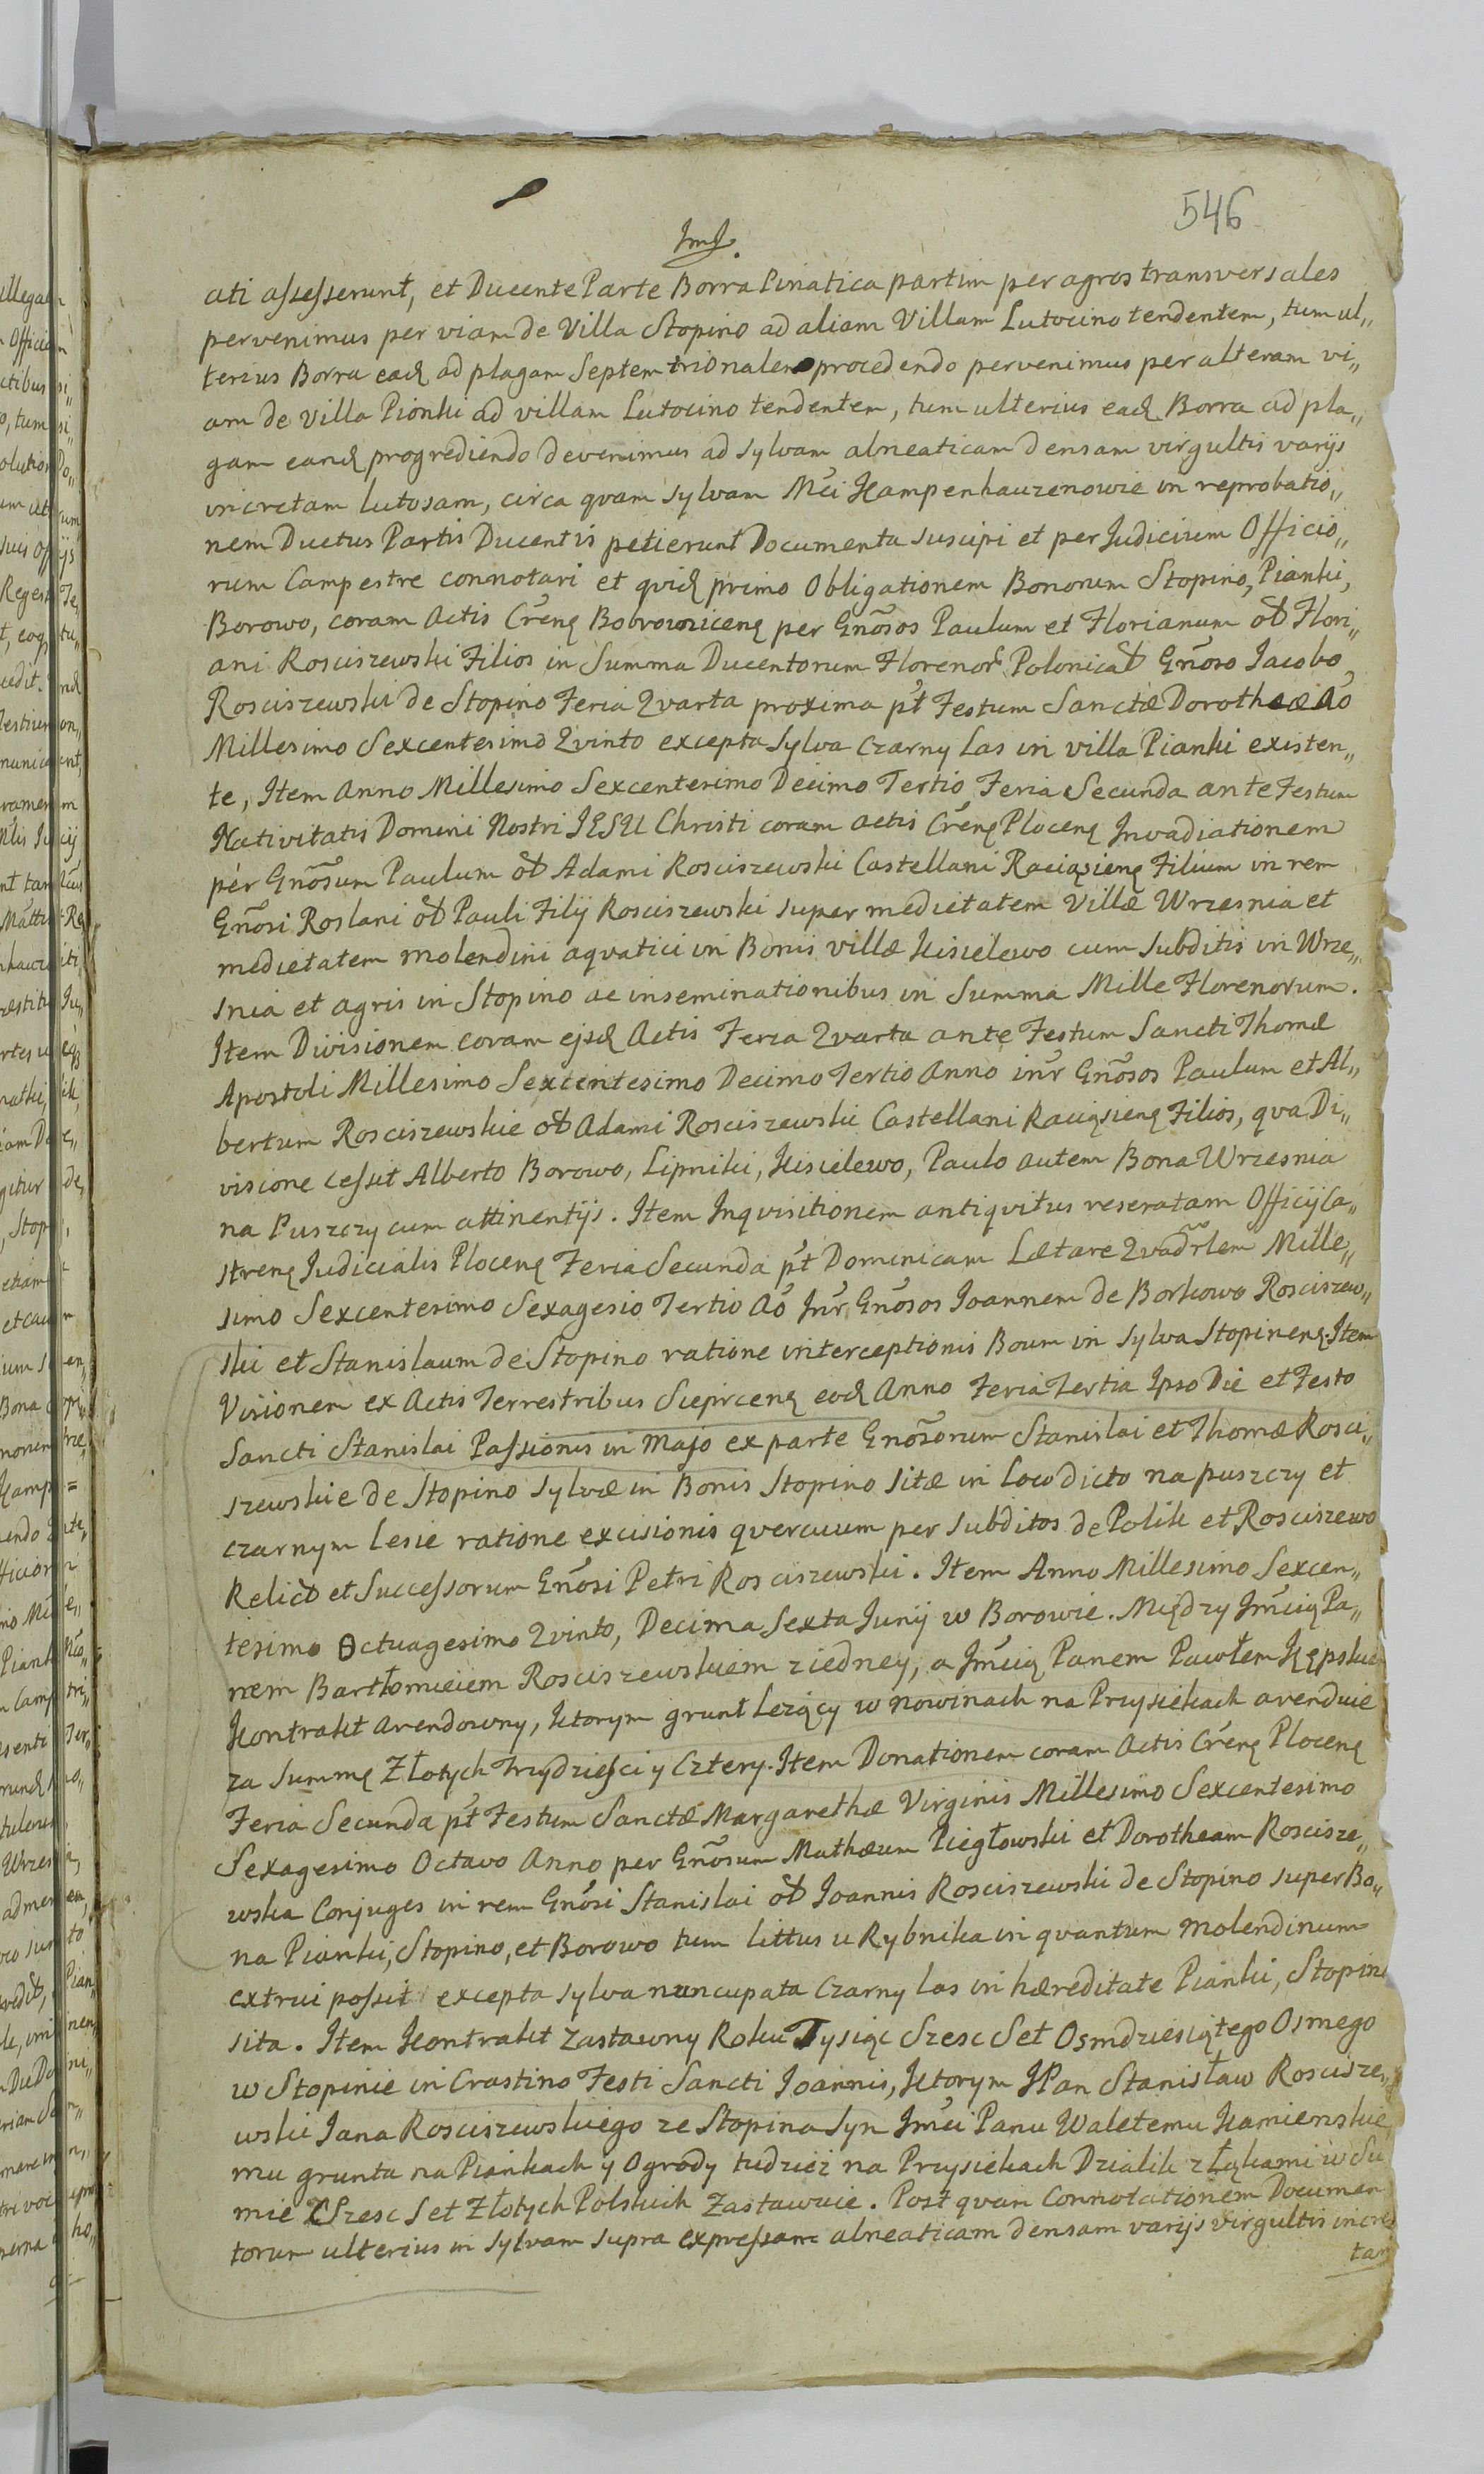 546
ati assesserunt, et Ducente Parte Borra Piniatica partim per agros transversales
pervenimus per viam de Villa Stopino ad aliam Villam Lutocino tendentem, tum ul„
terius Borra eadꝫ ad plagam Septemtrionalem procedendo pervenimus per alteram vi„
am de Villa Pionki ad villam Lutocino tendentem, tum ulterius eadꝫ Borra ad pla„
gam eandꝫ progrediendo devenimus ad sylvam alneaticam densam virgultis varijs
incretam lutosam, circa qvam sylvam Mci Hampenhauzenowie in reprobatio„
nem Ductus Partis Ducentis petierunt Documenta suscipi et per Judicium Officio„
rum Campestre connotari et qvidꝫ primo Obligationem Bonorum Stopino, Pianki,
Borowo, coram Actis Crẽnꝫ Bobrownicenꝫ per Gnõsos Paulum et Florianum oł Flori„
ani Rosciszewski Filios in Summa Ducentorum Florenorꝫ Polonicał Gnõso Jacobo
Rosciszewski de Stopino Feria Qvarta proxima pt̃ Festum Sanctæ Dorotheæ Aõ
Millesimo Sexcentesimo Qvinto excepta Sylva Czarny Las in villa Pianki existen„
te, Item Anno Millesimo Sexcentesimo Decimo Tertio Feria Secunda ante Festum
Nativitatis Domini Nostri JESU Christi coram actis Crẽnꝫ Plocenꝫ Invadiationem
per Gnõsum Paulum oł Adami Rosciszewski Castellani Raciąsienꝫ Filium in rem
Gnõsi Roslani oł Pauli Filij Rosciszewski super medietatem Villæ Wrzesnia et
medietatem molendini aqvatici in Bonis villæ Kisielewo cum subditis in Wrze„
snia et agris in Stopino ac inseminationibus in Summa Mille Florenorum.
Item Divisionem coram ejsdꝫ Actis Feria Qvarta ante Festum Sancti Thomæ
Apostoli Millesimo Sexcentesimo Decimo Tertio Anno inr̃ Gnõsos Paulum et Al„
bertum Rosciszewskie oł Adami Rosciszewski Castellani Raciąsienꝫ Filios, qva Di„
visione cessit Alberto Borowo, Lipniki, Kisielewo, Paulo autem Bona Wrzesnia
na Puszczy cum attinentijs. Item Inqvisitionem antiqvitus reseratam Officij Ca„
strenꝫ Judicialis Plocenꝫ Feria Secunda pt̃ Dominicam Lætare Qvadr̃lem Mille„
simo Sexcentesimo Sexagesio Tertio Aõ Inr̃ Gnõsos Joannem de Borkowo Rosciszew„
ski et Stanislaum de Stopino ratione interceptionis Boum in sylva Stopinenꝫ. Item
Visionem ex Actis Terrestribus Sieprcenꝫ eodꝫ Anno Feria Tertia Ipso Die et Festo
Sancti Stanislai Passionis in Majo ex parte Gnõsorum Stanislai et Thomæ Rosci„
szewskie de Stopino sylvæ in Bonis Stopino sitæ in Loco dicto na puszczy et
czarnym lesie ratione excisionis qvercuum per subditos de Polik et Rosciszewo
Relicł et Successorum Gnõsi Petri Rosciszewski. Item Anno Millesimo Sexcen„
tesimo Octuagesimo Qvinto, Decima Sexta Junij w Borowie. Między Jmcią Pa„
nem Bartłomieiem Rosciszewskiem z iedney, a Jmcią Panem Pawłem Kępskiem
Kontrakt arendowny, ktorym grunt Lezący w nowinach na Przysiekach arenduie
za summę Złotych Trzydziesci y Cztery. Item Donationem coram Actis Crẽnꝫ Plocenꝫ
Feria Secunda pt̃ Festum Sanctæ Margarethæ Virginis Millesimo Sexcentesimo
Sexagesimo Octavo Anno per Gnõsum Mathæum Piegłowski et Dorotheam Roscisze„
wska Conjuges in rem Gnõsi Stanislai oł Joannis Rosciszewski de Stopino super Bo„
na Pianki, Stopino, et Borowo tum littus u Rybnika in qvantum Molendinum
extrui possit excepta sylva nuncupata Czarny las in hæreditate Pianki, Stopino
sita. Item Kontrakt Zastawny Roku Tysiąc Szesc Set Osmdziesiątego Osmego
w Stopinie in Crastino Festi Sancti Joannis, Ktorym JPan Stanisław Roscisze„
wski Jana Rosciszewskiego ze Stopina syn Jmci Panu Walętemu Kamienskie
mu grunta na Piankach y Ogrody tudziez na Przysiekach Dzialik z łąkami w Su
mie Szesc Set Złotych Polskich Zastawuie. Post qvam Connotationem Documen
torum ulterius in sylvam supra expressam alneaticam densam varijs virgultis incre
tam